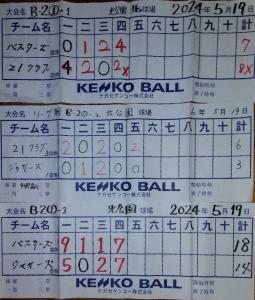 大会名 B2①-1 北球場 2024年5月19日
チーム名 一 二 三 四 五 六 七 八 九 十 計
バスターズ 0 1 2 4 7
21クラブ 4 2 0 2x 8x
KENKO BALL
ナガセケンコー株式会社
開始時刻
終了時刻
大会名 B-2②-2 北公園 球場 年5月19日
チーム名 一 二 三 四 五 六 七 八 九 十 計
21クラブ 2 0 2 0 2 6
ジャガーズ 0 1 2 0 3
KENKO BALL
ナガセケンコー株式会社
開始時刻
終了時刻
大会名 B2①-3 北公園 球場 2024年5月19日
チーム名 一 二 三 四 五 六 七 八 九 十 計
バスターズ 9 1 1 7 18
ジャイアーズ 5 0 2 7 14
KENKO BALL
ナガセケンコー株式会社
開始時刻
終了時刻